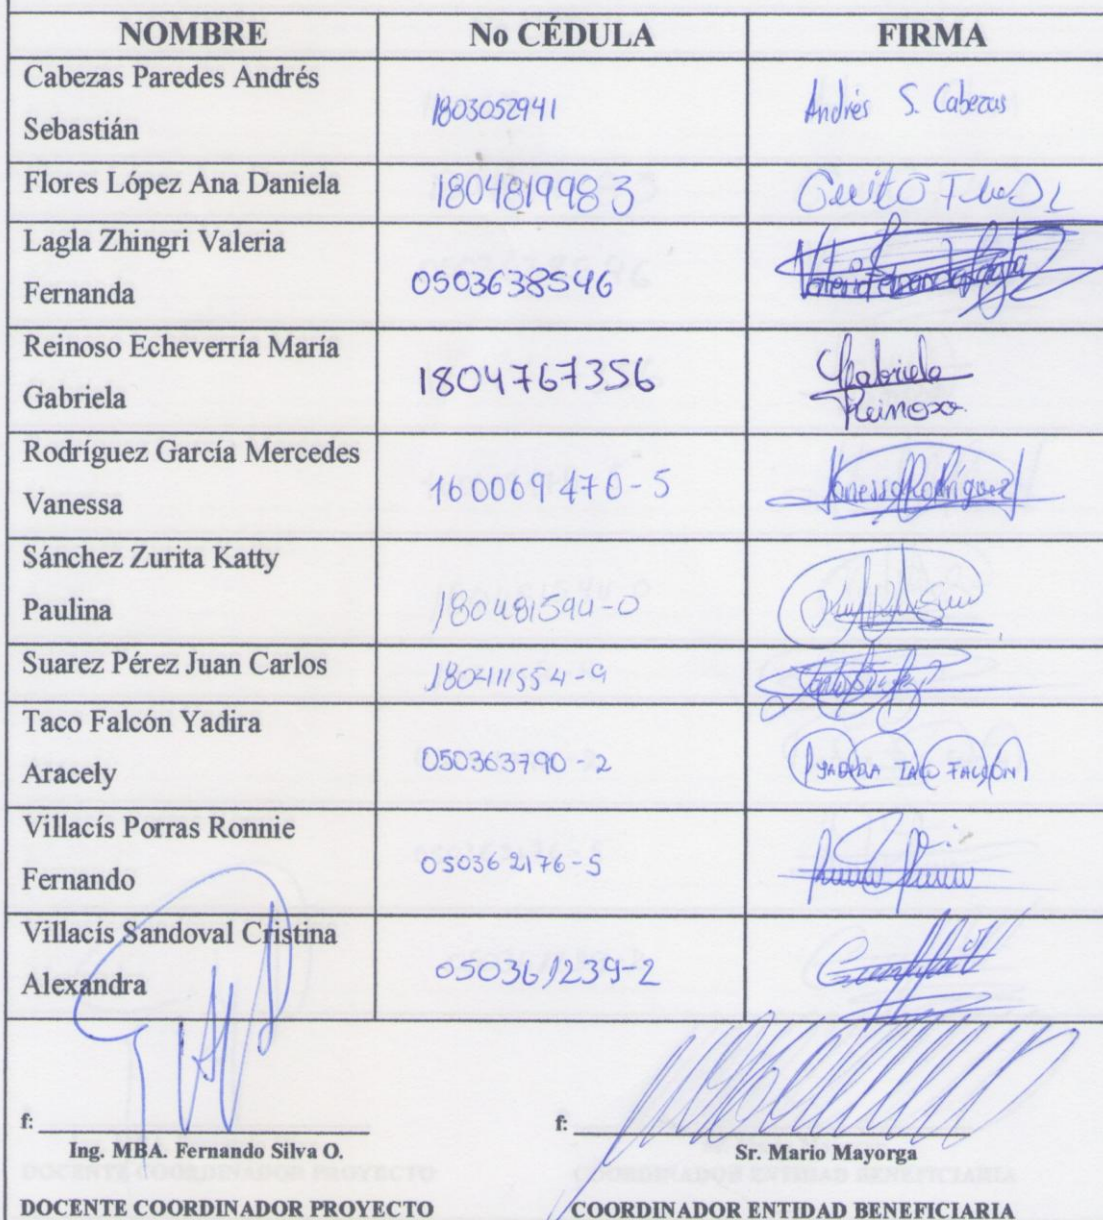 NOMBRE No CÉDULA FIRMA
Cabezas Paredes Andrés
Sebastián
1803052941
Andrés S. Cabezas
Flores López Ana Daniela 1804819983
Lagla Zhingri Valeria
Fernanda
0503638546
Valeria Fernanda Lagla
Reinoso Echeverría María
Gabriela
1804767356
Gabriela
Reinoso
Rodríguez García Mercedes
Vanessa
160069470-5
Vanessa Rodríguez
Sánchez Zurita Katty
Paulina
180481594-0
Suarez Pérez Juan Carlos 180411554-9
Taco Falcón Yadira
Aracely
050363790-2
YADIRA TACO FALCÓN
Villacís Porras Ronnie
Fernando
050362176-5
Villacís Sandoval Cristina
Alexandra
050361239-2
f: f:
Ing. MBA. Fernando Silva O. Sr. Mario Mayorga
DOCENTE COORDINADOR PROYECTO COORDINADOR ENTIDAD BENEFICIARIA